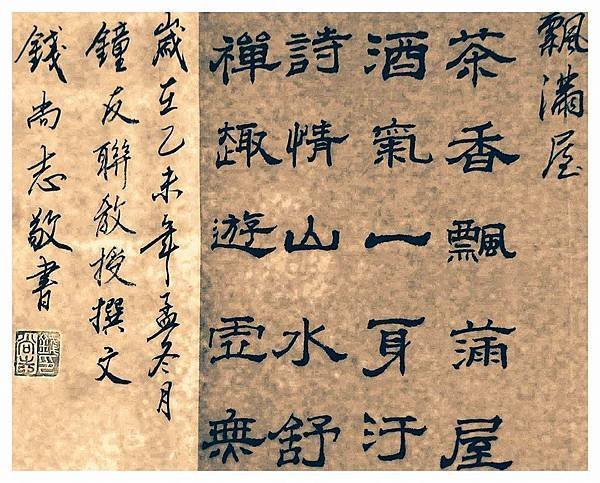 飄滿屋
茶香飄滿屋
酒氣一身汙
詩情山水舒
禪趣遊虛無
歲在乙未年孟冬月
鐘友聯教授撰文
錢尚志敬書